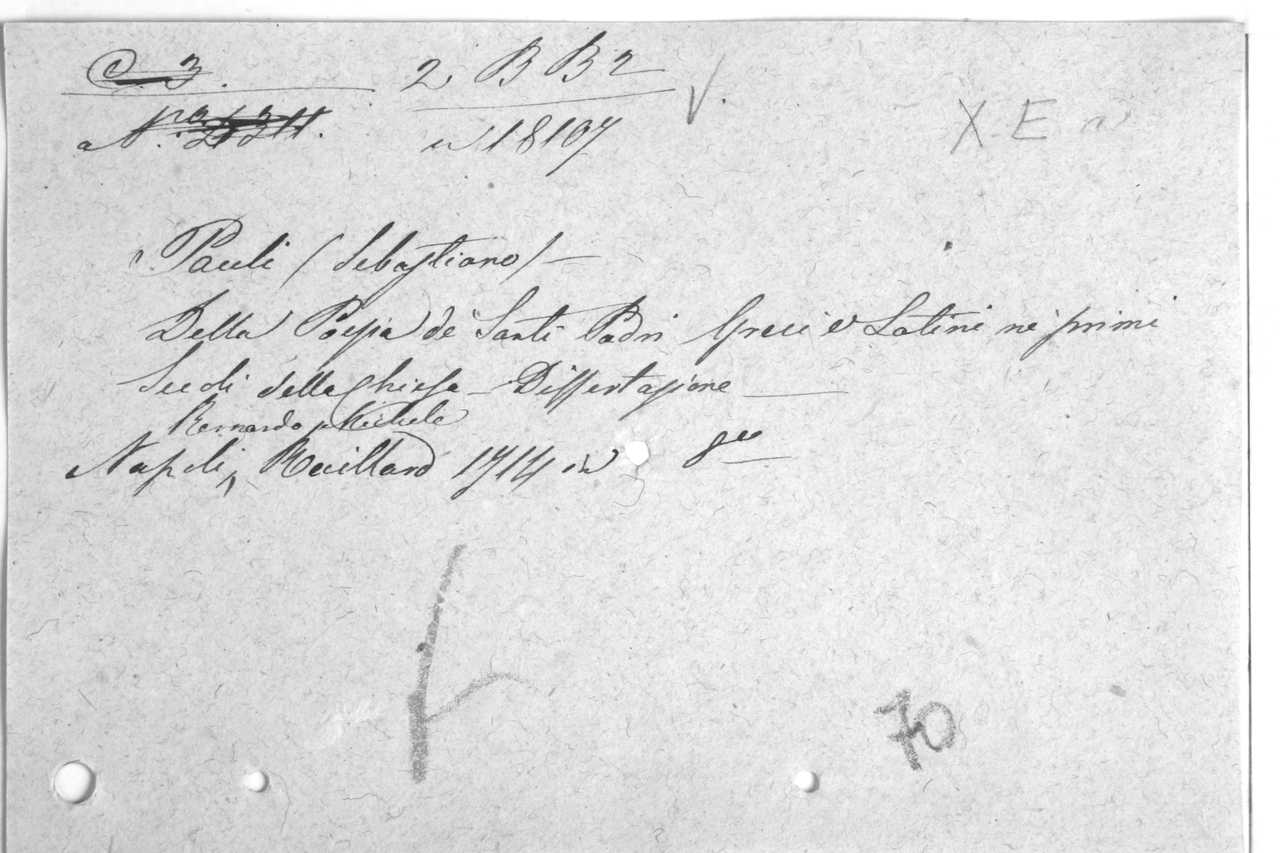 C 3. 2 B B 2
n 18107
X E
Pauli (Sebastiano) —
Della Poesia de' Santi Padri Greci e Latini ne' primi
Secoli della Chiesa — Dissertazione —
Bernardo Michele
Napoli, Raillard 1714 in 8vo
70